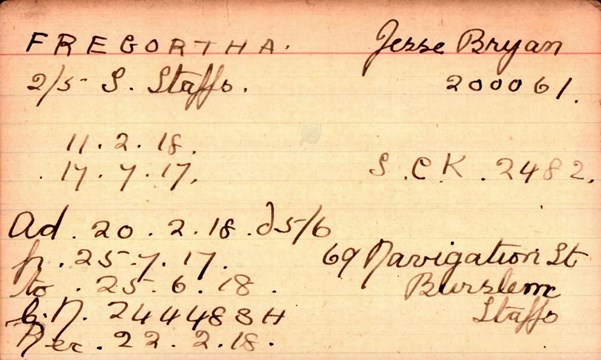 FREGORTHA. Jesse Bryan
2/5 S. Staffs. 200061.
11.2.18.
17.7.17. S.C.K. 2482.
Ad. 20.2.18. 5/6
fr. 25.7.17. 69 Navigation St
to. 25.6.18. Burslem
G.N. 244483H Staffs
Rec. 22.2.18.